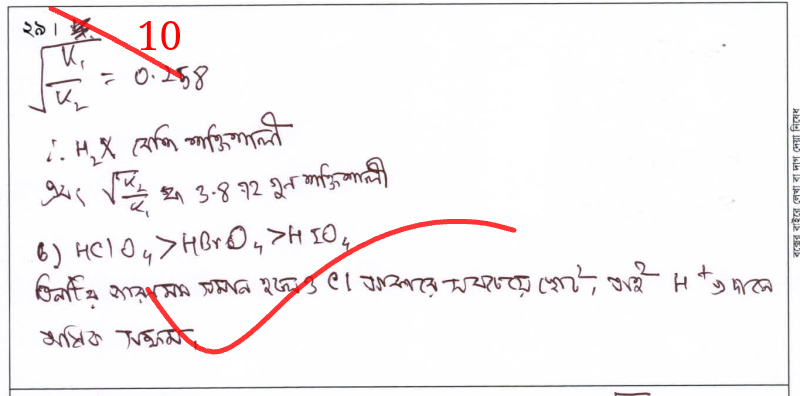 ২৯।
10
√(K₁/K₂) = 0.258
∴ H₂X বেশি শক্তিশালী
এবং √(K₂/K₁) = 3.872 গুন শক্তিশালী
b) HClO₄ > HBrO₄ > HIO₄
তিনটির জারণমান সমান হলেও Cl আকারে সবচেয়ে ছোট, তাই H⁺ দানে
অধিক সক্ষম।
বক্সের বাইরে লেখা বা দাগ দেয়া নিষেধ